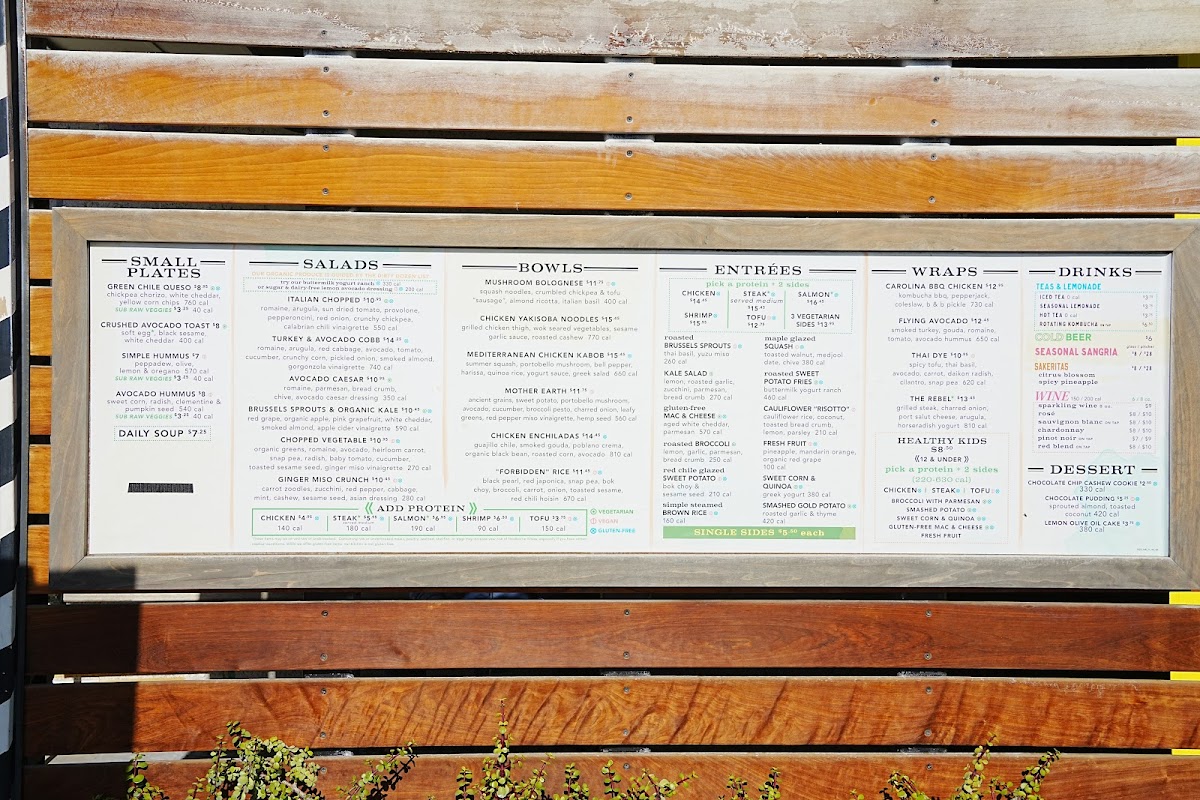 SMALL
PLATES
GREEN CHILE QUESO $8
chickpea chorizo, white cheddar,
yellow corn chips 760 cal
SUB RAW VEGGIES $3.25 40 cal
CRUSHED AVOCADO TOAST $8
soft egg*, black sesame,
white cheddar 400 cal
SIMPLE HUMMUS $7
peppadew, olive,
lemon & oregano 570 cal
SUB RAW VEGGIES $3.25 40 cal
AVOCADO HUMMUS $8
sweet corn, radish, clementine &
pumpkin seed 540 cal
SUB RAW VEGGIES $3.25 40 cal
DAILY SOUP $7.25
SALADS
OUR ORGANIC PRODUCE IS GUIDED BY THE DIRTY DOZEN LIST
try our buttermilk yogurt ranch 330 cal
or sugar & dairy-free lemon avocado dressing 200 cal
ITALIAN CHOPPED $10.95
romaine, arugula, sun dried tomato, provolone,
pepperoncini, red onion, crunchy chickpea,
calabrian chili vinaigrette 550 cal
TURKEY & AVOCADO COBB $14.25
romaine, arugula, red cabbage, avocado, tomato,
cucumber, crunchy corn, pickled onion, smoked almond,
gorgonzola vinaigrette 740 cal
AVOCADO CAESAR $10.95
romaine, parmesan, bread crumb,
chive, avocado caesar dressing 350 cal
BRUSSELS SPROUTS & ORGANIC KALE $10.45
red grape, organic apple, pink grapefruit, white cheddar,
smoked almond, apple cider vinaigrette 590 cal
CHOPPED VEGETABLE $10.95
organic greens, romaine, avocado, heirloom carrot,
snap pea, radish, baby tomato, cucumber,
toasted sesame seed, ginger miso vinaigrette 270 cal
GINGER MISO CRUNCH $10.45
carrot zoodles, zucchini, red pepper, cabbage,
mint, cashew, sesame seed, asian dressing 280 cal
ADD PROTEIN
CHICKEN $4.95 STEAK* $5.95 SALMON* $6.95 SHRIMP $6.25 TOFU $3.75
140 cal 180 cal 190 cal 90 cal 150 cal
VEGETARIAN
VEGAN
GLUTEN-FREE
BOWLS
MUSHROOM BOLOGNESE $11.75
squash noodles, crumbled chickpea & tofu
"sausage", almond ricotta, italian basil 400 cal
CHICKEN YAKISOBA NOODLES $15.45
grilled chicken thigh, wok seared vegetables, sesame
garlic sauce, roasted cashew 770 cal
MEDITERRANEAN CHICKEN KABOB $15.45
summer squash, portobello mushroom, bell pepper,
harissa, quinoa rice, yogurt sauce, green salad 660 cal
MOTHER EARTH $11.75
ancient grains, sweet potato, portobello mushroom,
avocado, cucumber, broccoli pesto, cherried onion, leafy
greens, red pepper miso vinaigrette, hemp seed 560 cal
CHICKEN ENCHILADAS $14.45
guajillo chile, smoked gouda, poblano crema,
organic black bean, roasted corn, avocado 810 cal
"FORBIDDEN" RICE $11.45
black pearl, red japonica, snap pea, bok
choy, broccoli, carrot, onion, toasted sesame,
red chili hoisin 670 cal
ENTRÉES
pick a protein + 2 sides
CHICKEN $14.45
STEAK* served medium $15.45
SALMON* $16.45
SHRIMP $15.95
TOFU $12.75
3 VEGETARIAN
SIDES $13.95
roasted
BRUSSELS SPROUTS
thai basil, yuzu miso
260 cal
KALE SALAD
lemon, roasted garlic,
zucchini, parmesan,
bread crumb 270 cal
gluten-free
MAC & CHEESE
aged white cheddar,
parmesan 570 cal
roasted BROCCOLI
lemon, garlic, parmesan,
bread crumb 250 cal
red chile glazed
SWEET POTATO
bok choy &
sesame seed 210 cal
simple steamed
BROWN RICE
160 cal
maple glazed
SQUASH
toasted walnut, medjool
date, chive 380 cal
roasted SWEET
POTATO FRIES
buttermilk yogurt ranch
460 cal
CAULIFLOWER "RISOTTO"
cauliflower rice, coconut,
toasted bread crumb,
lemon, parsley 210 cal
FRESH FRUIT
pineapple, mandarin orange,
organic red grape
100 cal
SWEET CORN &
QUINOA
greek yogurt 380 cal
SMASHED GOLD POTATO
roasted garlic & thyme
420 cal
SINGLE SIDES $5.50 each
WRAPS
CAROLINA BBQ CHICKEN $12.95
kombucha bbq, pepperjack,
coleslaw, b & b pickle 720 cal
FLYING AVOCADO $12.45
smoked turkey, gouda, romaine,
tomato, avocado hummus 650 cal
THAI DYE $10.95
spicy tofu, thai basil,
avocado, carrot, daikon radish,
cilantro, snap pea 620 cal
THE REBEL* $13.45
grilled steak, charred onion,
port salut cheese, arugula,
horseradish yogurt 810 cal
HEALTHY KIDS
$8.50
(12 & UNDER)
pick a protein + 2 sides
(220-630 cal)
CHICKEN | STEAK | TOFU
BROCCOLI WITH PARMESAN
SMASHED POTATO
SWEET CORN & QUINOA
GLUTEN-FREE MAC & CHEESE
FRESH FRUIT
DRINKS
TEAS & LEMONADE
ICED TEA 0 cal
SEASONAL LEMONADE
HOT TEA 0 cal
ROTATING KOMBUCHA ON TAP
COLD BEER $6
SEASONAL SANGRIA $8 / $28
SAKERITAS $8 / $28
citrus blossom
spicy pineapple
WINE 150 / 200 cal 6 / 9 oz.
sparkling wine $8
rosé $8 / $10
sauvignon blanc ON TAP $8 / $10
chardonnay $8 / $10
pinot noir ON TAP $7 / $9
red blend ON TAP $8 / $10
DESSERT
CHOCOLATE CHIP CASHEW COOKIE $2
330 cal
CHOCOLATE PUDDING $5
sprouted almond, toasted
coconut 420 cal
LEMON OLIVE OIL CAKE $3
380 cal